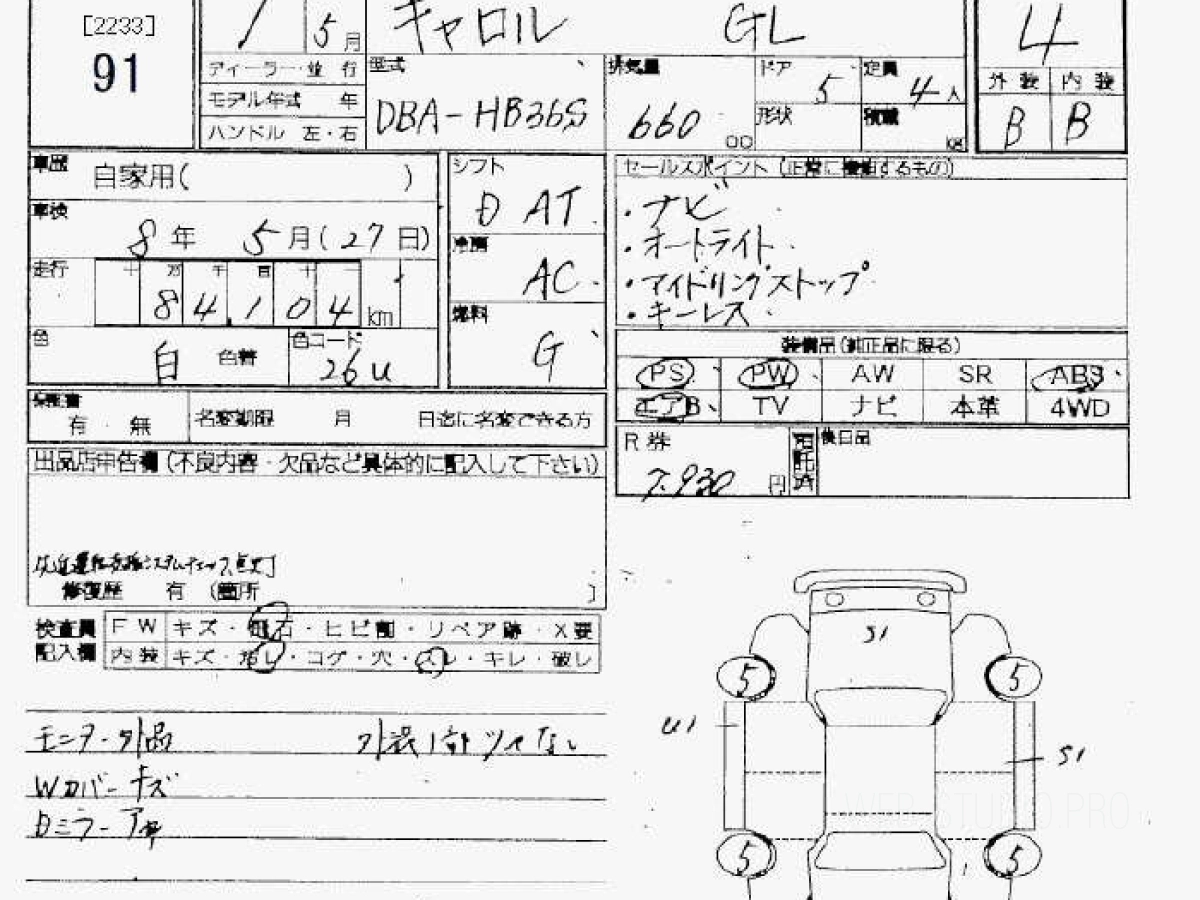 [2233]
91
1 5月
キャロル GL
4
ディーラー・並行
モデル年式 年
ハンドル 左・右
型式
DBA-HB36S
排気量
660
ドア 5
形状
定員 4人
積載 kg
外装 内装
B B
車歴 自家用( )
車検
8年 5月(27日)
走行
十 万 千 百 十 一
84,104 km
色
白 色替
色コード
26U
シフト
D AT
冷房
AC
燃料
G
セールスポイント(正常に機能するもの)
・ナビ
・オートライト
・アイドリングストップ
・キーレス
装備品(純正品に限る)
PS PW AW SR ABS
エアB TV ナビ 本革 4WD
保証書
有・無
名変期限 月 日迄に名変できる方
R券
7,930 円
預託済
後日品
出品店申告欄(不良内容・欠品など具体的に記入して下さい)
修復歴 有 (箇所 )
検査員
記入欄
FW キズ・飛石・ヒビ割・リペア跡・X要
内装 キズ・汚レ・コゲ・穴・スレ・キレ・破レ
モニター外品 外装1部ツヤなし
Wカバーキズ
Dミラー
S1
5 5
U1
S1
5 5
WEB STUDIO PRO